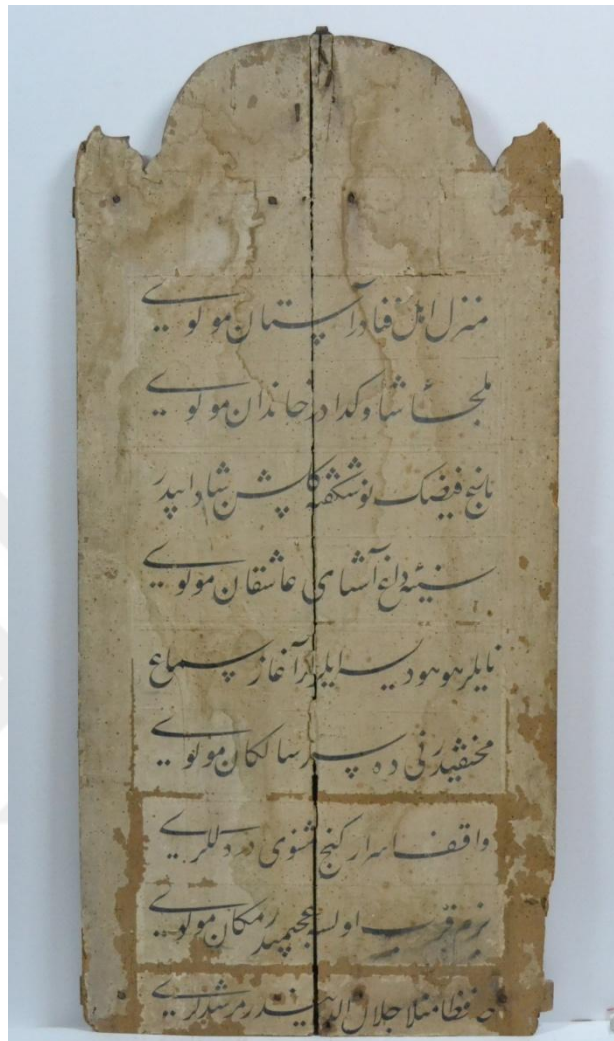 منزل اهل فنادر آستان مولوی
ملجأ شاه و كدادر خاندان مولوی
باغ فیضك نوشكفته كلشن شادابیدر
سینهٔ داغ آشنای عاشقان مولوی
نایلر هو هو دیسه ایلرلر آغاز سماع
مختفیدر نی ده سر سالكان مولوی
واقف اسرار كنج مثنوی در دللری
بزم قرب اولسه عجبمیدر مكان مولوی
منلا جلال الدیندر مرشدلری